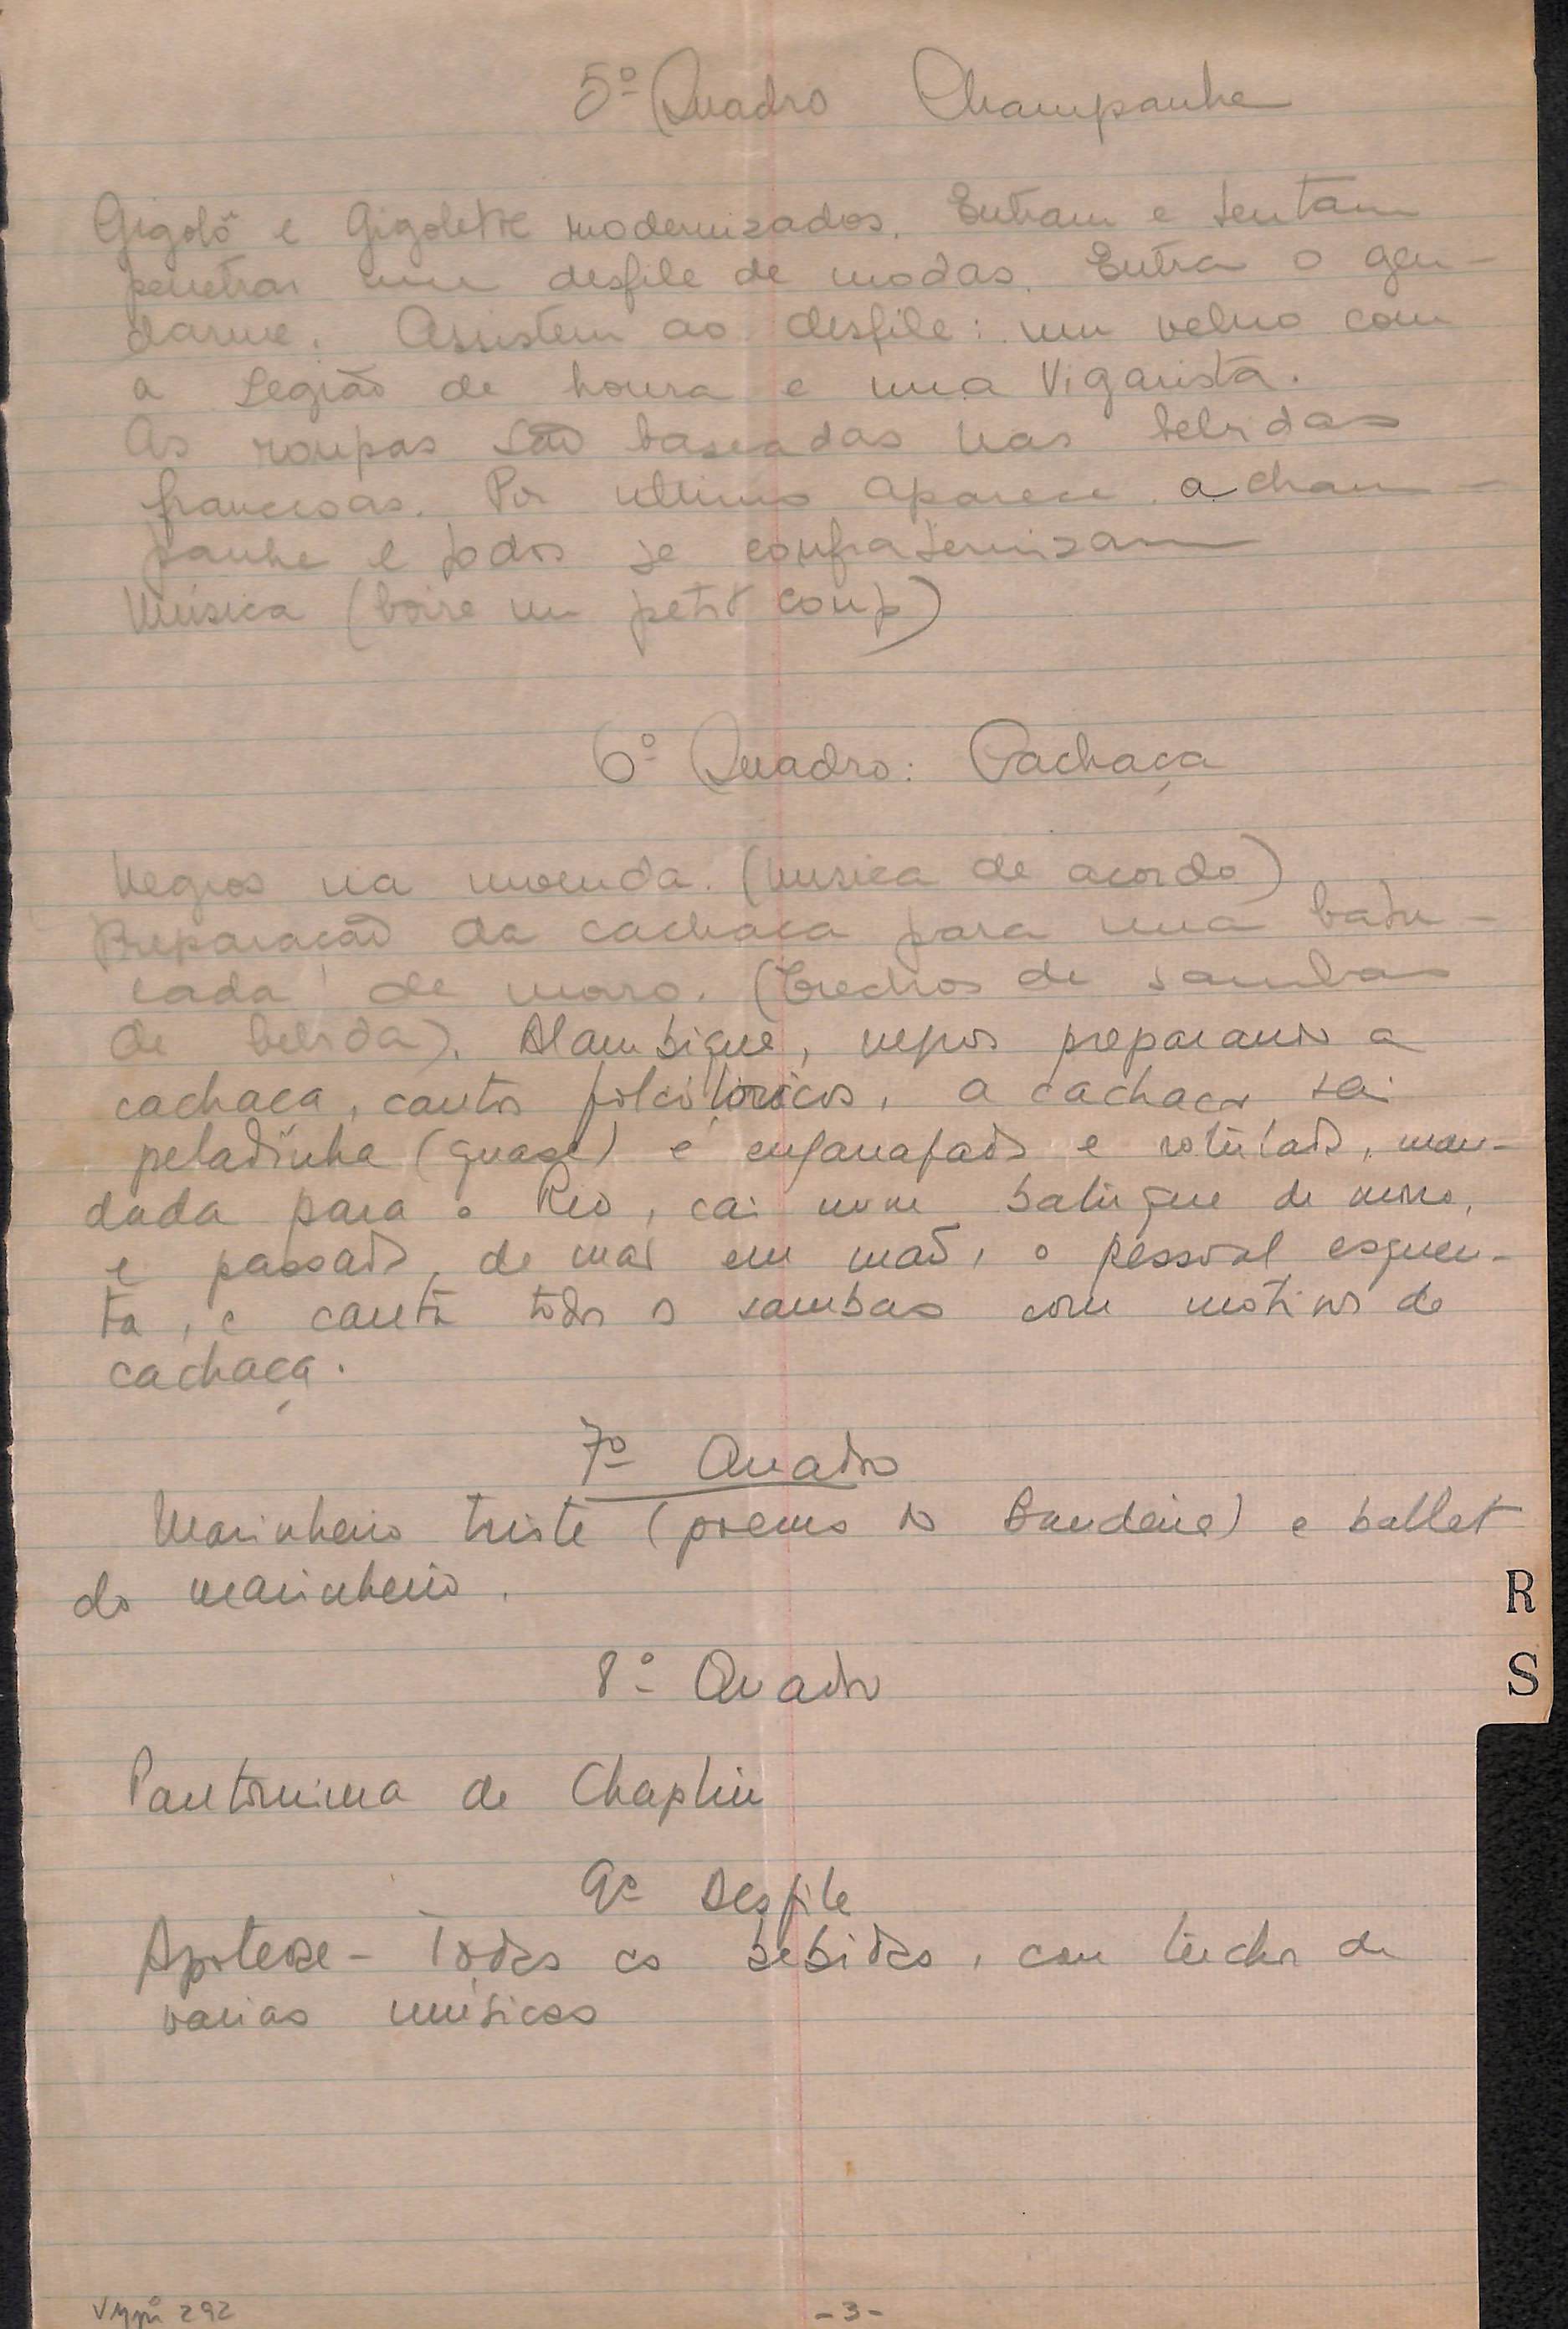 5º Quadro Champanhe
Gigolô e Gigolette modernizados. Entram e tentam
penetrar num desfile de modas. Entra o gen-
darme. Assistem ao desfile: um velho com
a Legião de honra e uma Vigarista.
As roupas são baseadas nas bebidas
francesas. Por ultimo aparece a cham-
panhe e todos se confraternizam
Música (boire un petit coup)
6º Quadro: Cachaça
Negros na moenda. (musica de acordo)
Preparação da cachaça para uma batu-
cada de morro. (trechos de sambas
de bebida). Alambique, negros preparando a
cachaça, cantos folclóricos, a cachaça sai
peladinha (quase) é engarrafada e rotulada, man-
dada para o Rio, cai num batuque de morro,
e passada de mão em mão, o pessoal esquen-
ta, e canta todos os sambas com motivos de
cachaça.
7º Quadro
Marinheiro triste (poema do Bandeira) e ballet
do marinheiro.
8º Quadro
Pantomima de Chaplin
9º Desfile
Apoteose - Todas as bebidas, com trechos de
varias músicas
R
S
292
-3-